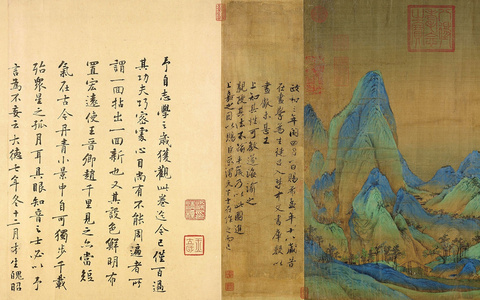 政和三年閏四月一日賜希孟年十八歲昔
在畫學為生徒召入禁中文書庫數以
畫獻未甚工
上知其性可教遂誨諭之
親授其法不踰半歲乃以此圖進
上嘉之因以賜臣京謂天下士在作之而已
予自志學之歲獲觀此卷迄今已僅百過
其功夫巧密處心目尚有不能周遍者所
謂一回拈出一回新也又其設色鮮明布
置宏遠使王晉卿趙千里見之亦當短
氣在古今丹青小景中自可獨步千載
殆眾星之孤月耳具眼知音之士必以予
言為不妄云大德七年冬十二月才生魄昭